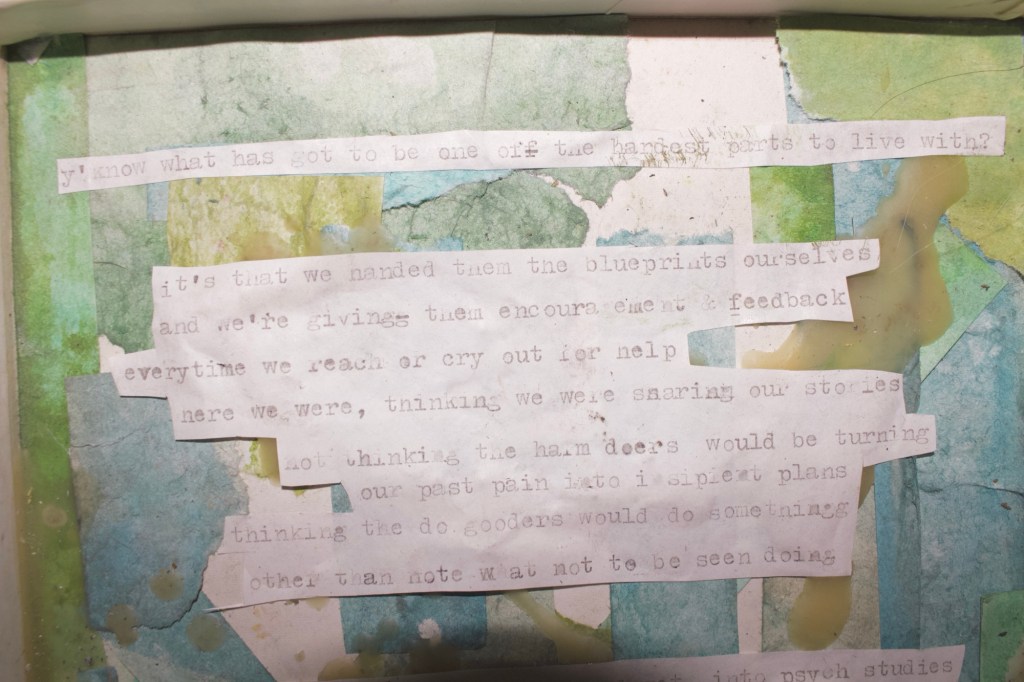 y'know what has got to be one off the hardest parts to live with?
it's that we handed them the blueprints ourselves
and we're givings them encouragement & feedback
everytime we reach or cry out for help
here we were, thinking we were sharing our stories
not thinking the harm doers would be turning
our past pain into insipient plans
thinking the do gooders would do somethingg
other than note what not to be seen doing
into psych studies